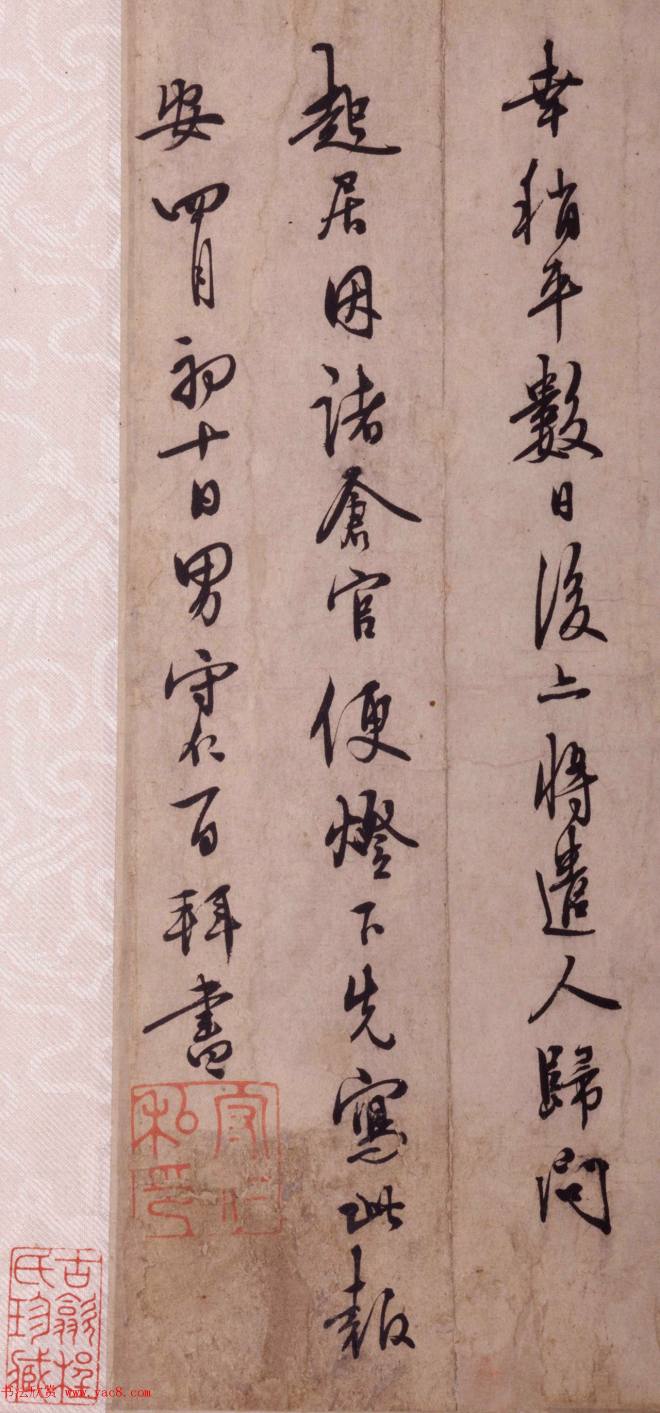 幸稍平數日後亦將遣人歸問
起居因諸倉官便燈下先寫此報
安四月初十日男守仁百拜書
守仁私印
古歙程氏珍藏
书法欣赏 www.yac8.com